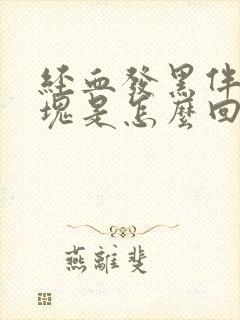 經血發黑伴
塊是怎麼回
燕離斐